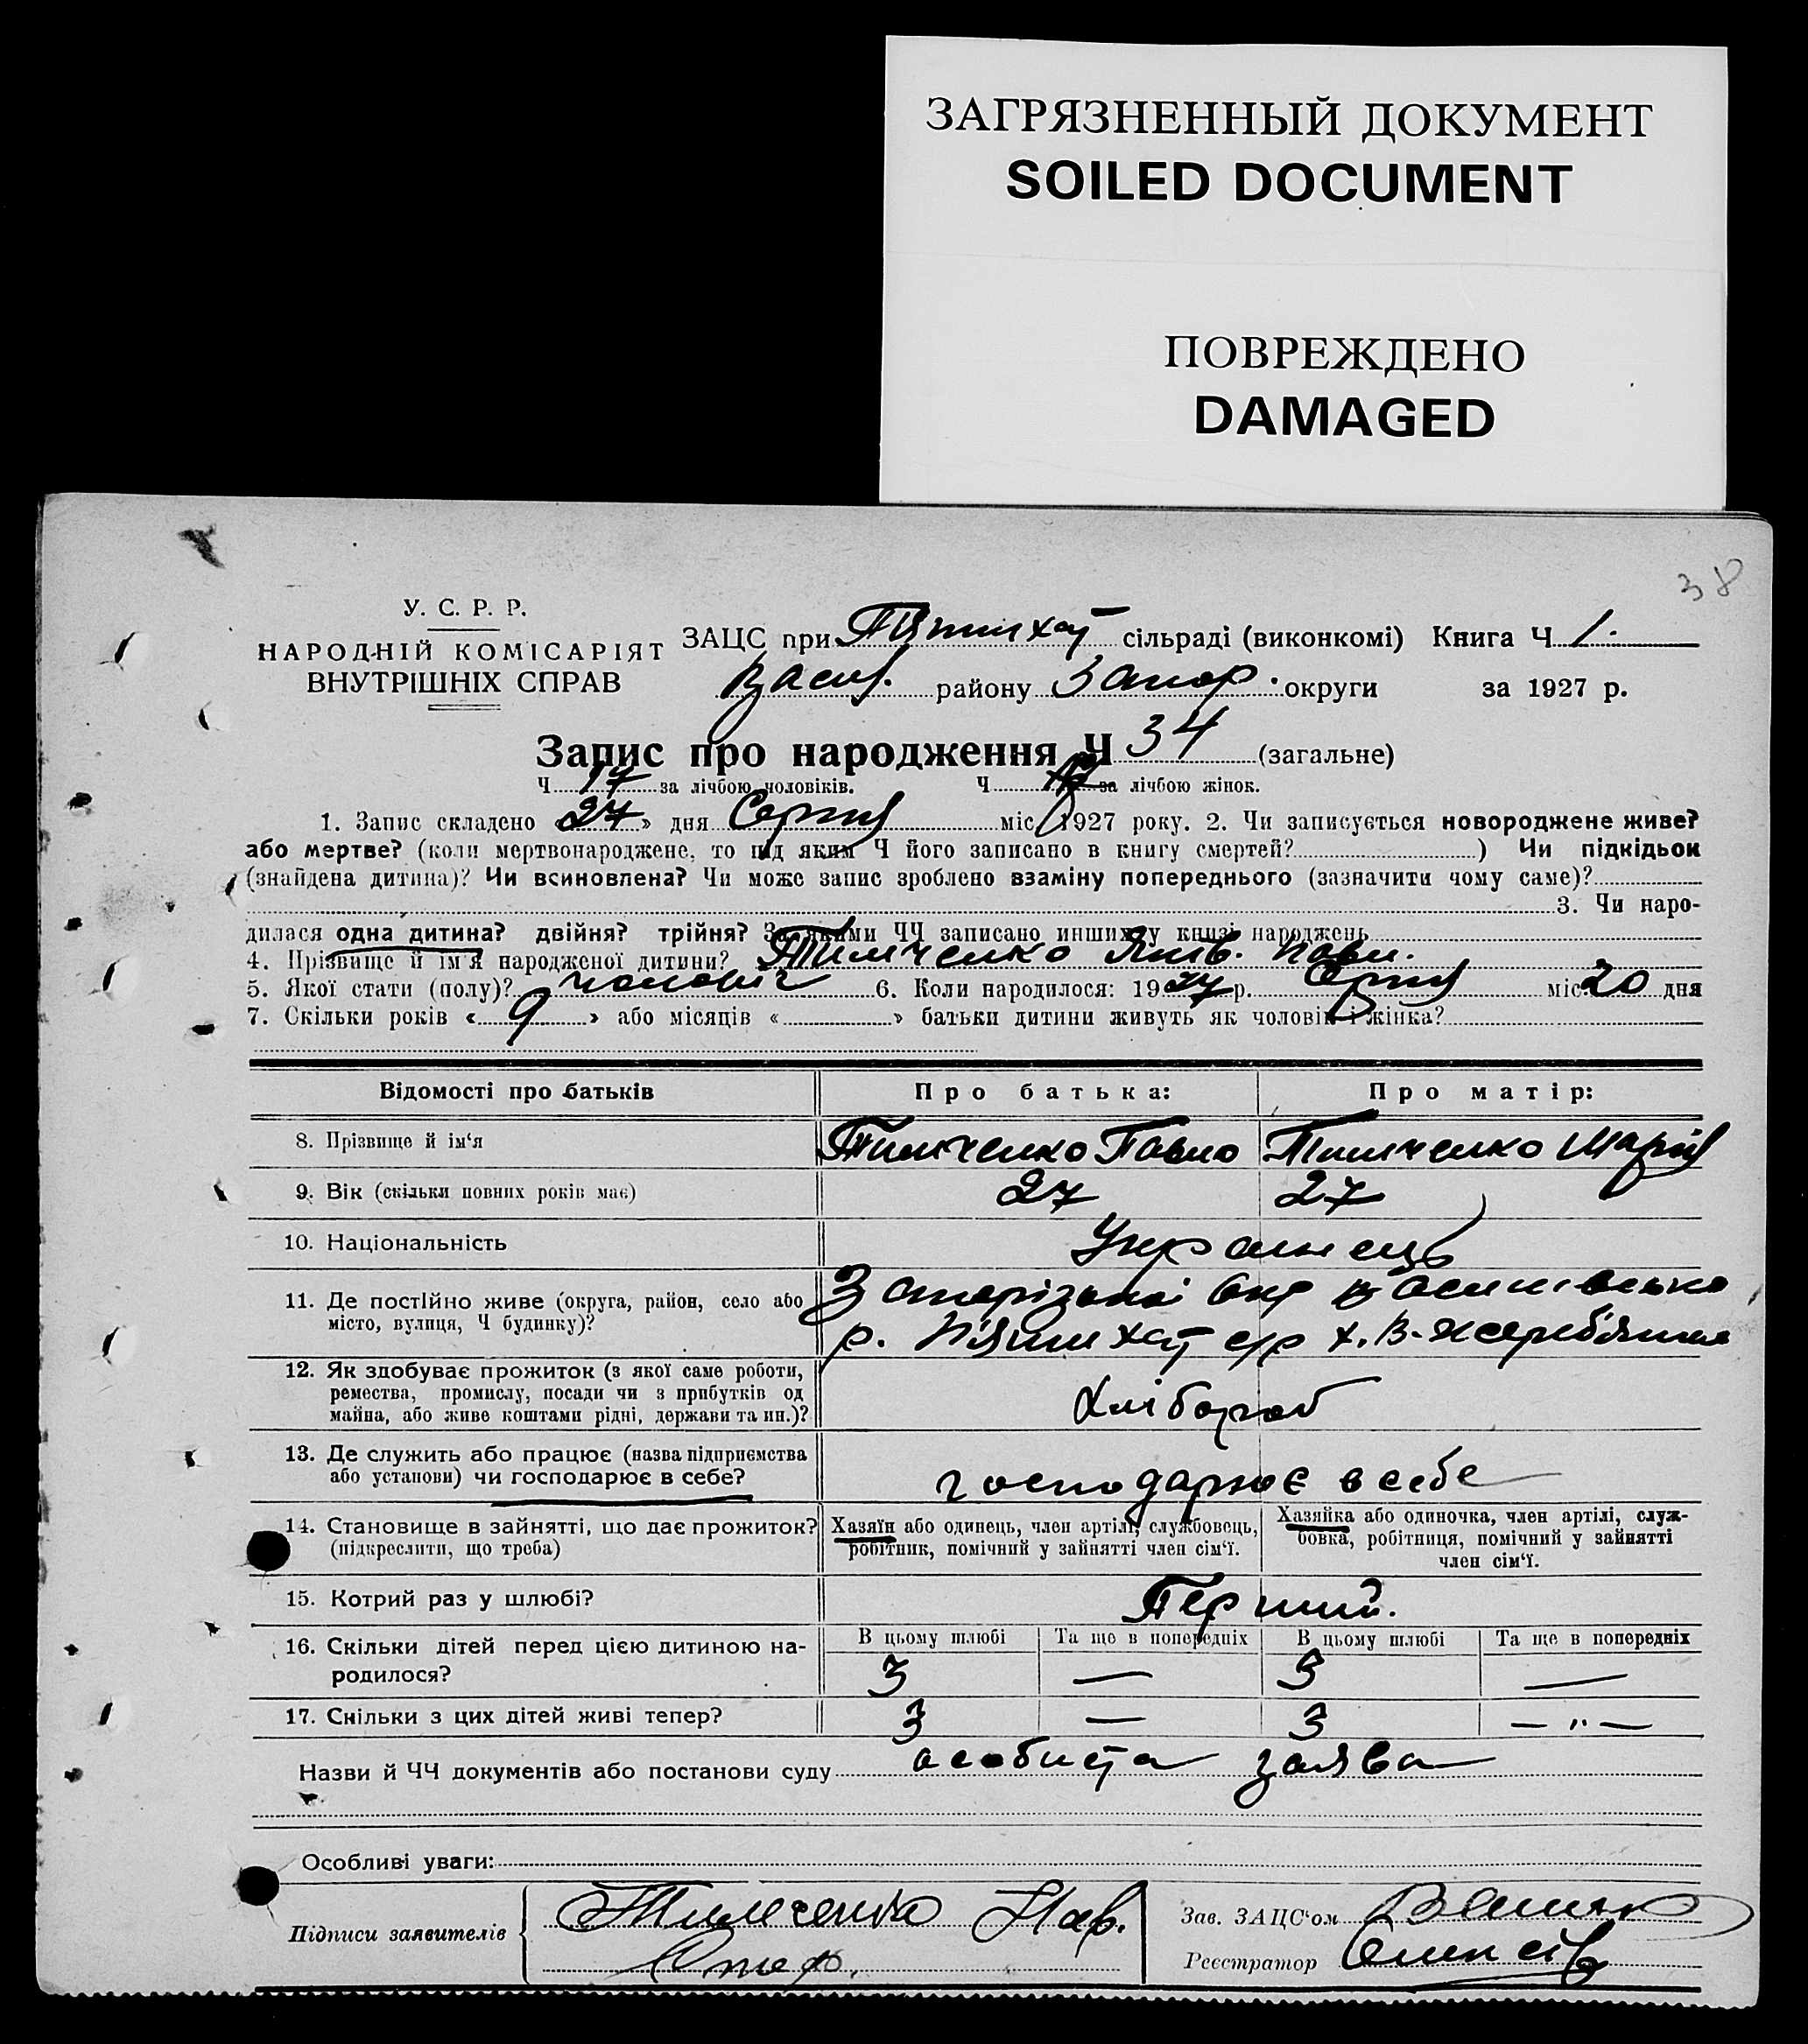 ЗАГРЯЗНЕННЫЙ ДОКУМЕНТ
SOILED DOCUMENT
ПОВРЕЖДЕНО
DAMAGED
38
У. С. Р. Р.
НАРОДНІЙ КОМІСАРІЯТ
ВНУТРІШНІХ СПРАВ
ЗАЦС при Пятихат сільраді (виконкомі) Книга Ч 1.
Васил. району Запор. округи за 1927 р.
Запис про народження Ч 34 (загальне)
Ч 17 за лічбою чоловіків. Ч за лічбою жінок.
1. Запис складено 27 » дня Серпня міс 1927 року. 2. Чи записується новороджене живе?
або мертве? (коли мертвонароджене, то під яким Ч його записано в книгу смертей? ) Чи підкідьок
(знайдена дитина)? Чи всиновлена? Чи може запис зроблено взаміну попереднього (зазначити чому саме)?
3. Чи наро-
дилася одна дитина? двійня? трійня? За якими ЧЧ записано инших у книзі народжень
4. Прізвище й ім'я народженої дитини? Тимченко Павл.
5. Якої стати (полу)? чоловіч 6. Коли народилося: 1927 р. Серпня міс. 20 дня
7. Скільки років « 9 » або місяців « » батьки дитини живуть як чоловік і жінка?
Відомості про батьків Про батька: Про матір:
8. Прізвище й ім'я Тимченко Павло Тимченко Марія
9. Вік (скільки повних років має) 27 27
10. Національність Украинець
11. Де постійно живе (округа, район, село або Запорізької Окр Василівсько
місто, вулиця, Ч будинку)? р. Пятихат с/р х. В-Жеребянка
12. Як здобуває прожиток (з якої саме роботи,
ремества, промислу, посади чи з прибутків од
майна, або живе коштами рідні, держави та ин.)? Хлібороб
13. Де служить або працює (назва підприємства
або установи) чи господарює в себе? господарює в себе
14. Становище в зайнятті, що дає прожиток? Хазяїн або одинець, член артілі, службовець, Хазяйка або одиночка, член артілі, служ-
(підкреслити, що треба) робітник, помічний у зайнятті член сім'ї. бовка, робітниця, помічний у зайнятті
член сім'ї.
15. Котрий раз у шлюбі? Перший.
16. Скільки дітей перед цією дитиною на- В цьому шлюбі Та ще в попередніх В цьому шлюбі Та ще в попередніх
родилося? 3 — 3 —
17. Скільки з цих дітей живі тепер? 3 — 3 — " —
Назви й ЧЧ документів або постанови суду особиста заява
Особливі уваги:
Підписи заявителів Тимченко Пав.
Зав. ЗАЦС'ом
Реєстратор